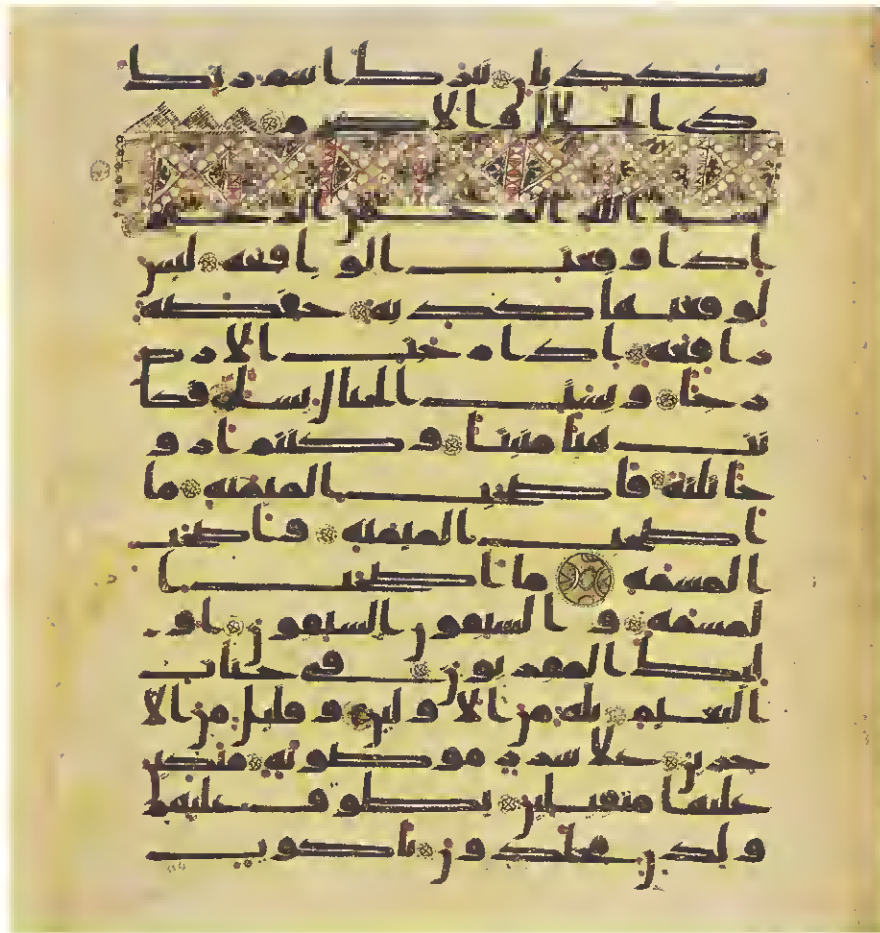 تكذبان تبرك اسم ربك
ذي الجلال والاكرم
بسم الله الرحمن الرحيم
اذا وقعت الواقعة ليس
لوقعتها كذبة خفضة
رافعة اذا رجت الارض
رجا وبست الجبال بسا فكا
نت هبا منبثا وكنتم ازو
جا ثلثة فاصحب الميمنة ما
اصحب الميمنة واصحب
المشمة ما اصحب ا
لمشمة والسبقون السبقون او
لئك المقربون في جنات
النعيم ثلة من الاولين وقليل من الا
خرين على سرر موضونة متكين
عليها متقبلين يطوف عليهم
ولدن مخلدون باكوب